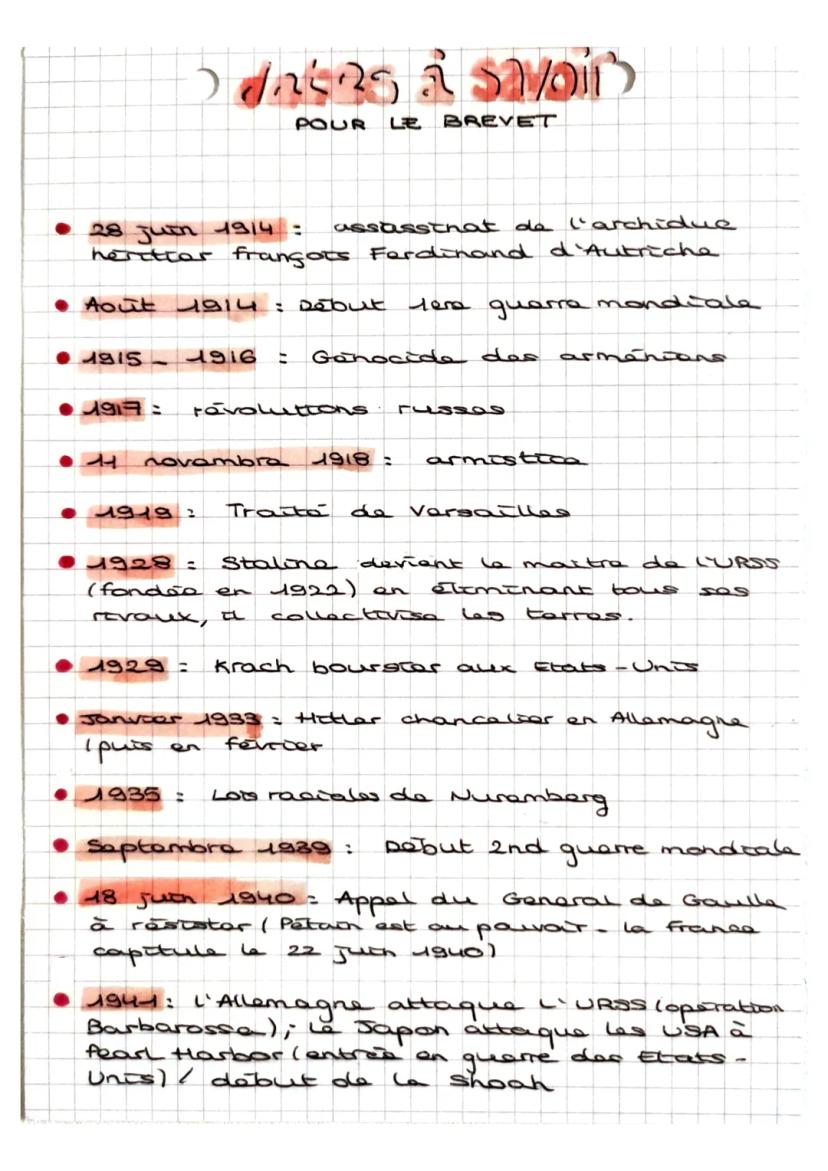 dates à savoir
POUR LE BREVET
• 28 juin 1914 : assassinat de l'archiduc
héritier françois Ferdinand d'Autriche
• Août 1914 : Début 1ere guerre mondiale
• 1915 - 1916 : Génocide des arméniens
• 1917 : révolutions russes
• 11 novembre 1918 : armistice
• 1919 : Traité de Versailles
• 1928 : Staline devient le maitre de l'URSS
(fondée en 1922) en éliminant tous ses
rivaux, il collectivise les terres.
• 1929 : Krach boursier aux Etats-Unis
• Janvier 1933 : Hitler chancelier en Allemagne
(puis en février
• 1935 : Lois raciales de Nuremberg
• Septembre 1939 : Début 2nd guerre mondiale
• 18 juin 1940 : Appel du General de Gaulle
à résister (Pétain est au pouvoir - la france
capitule le 22 juin 1940)
• 1941 : L'Allemagne attaque L'URSS (opération
Barbarossa) ; Le Japon attaque les USA à
Pearl Harbor (entrée en guerre des Etats-
Unis) / début de la Shoah